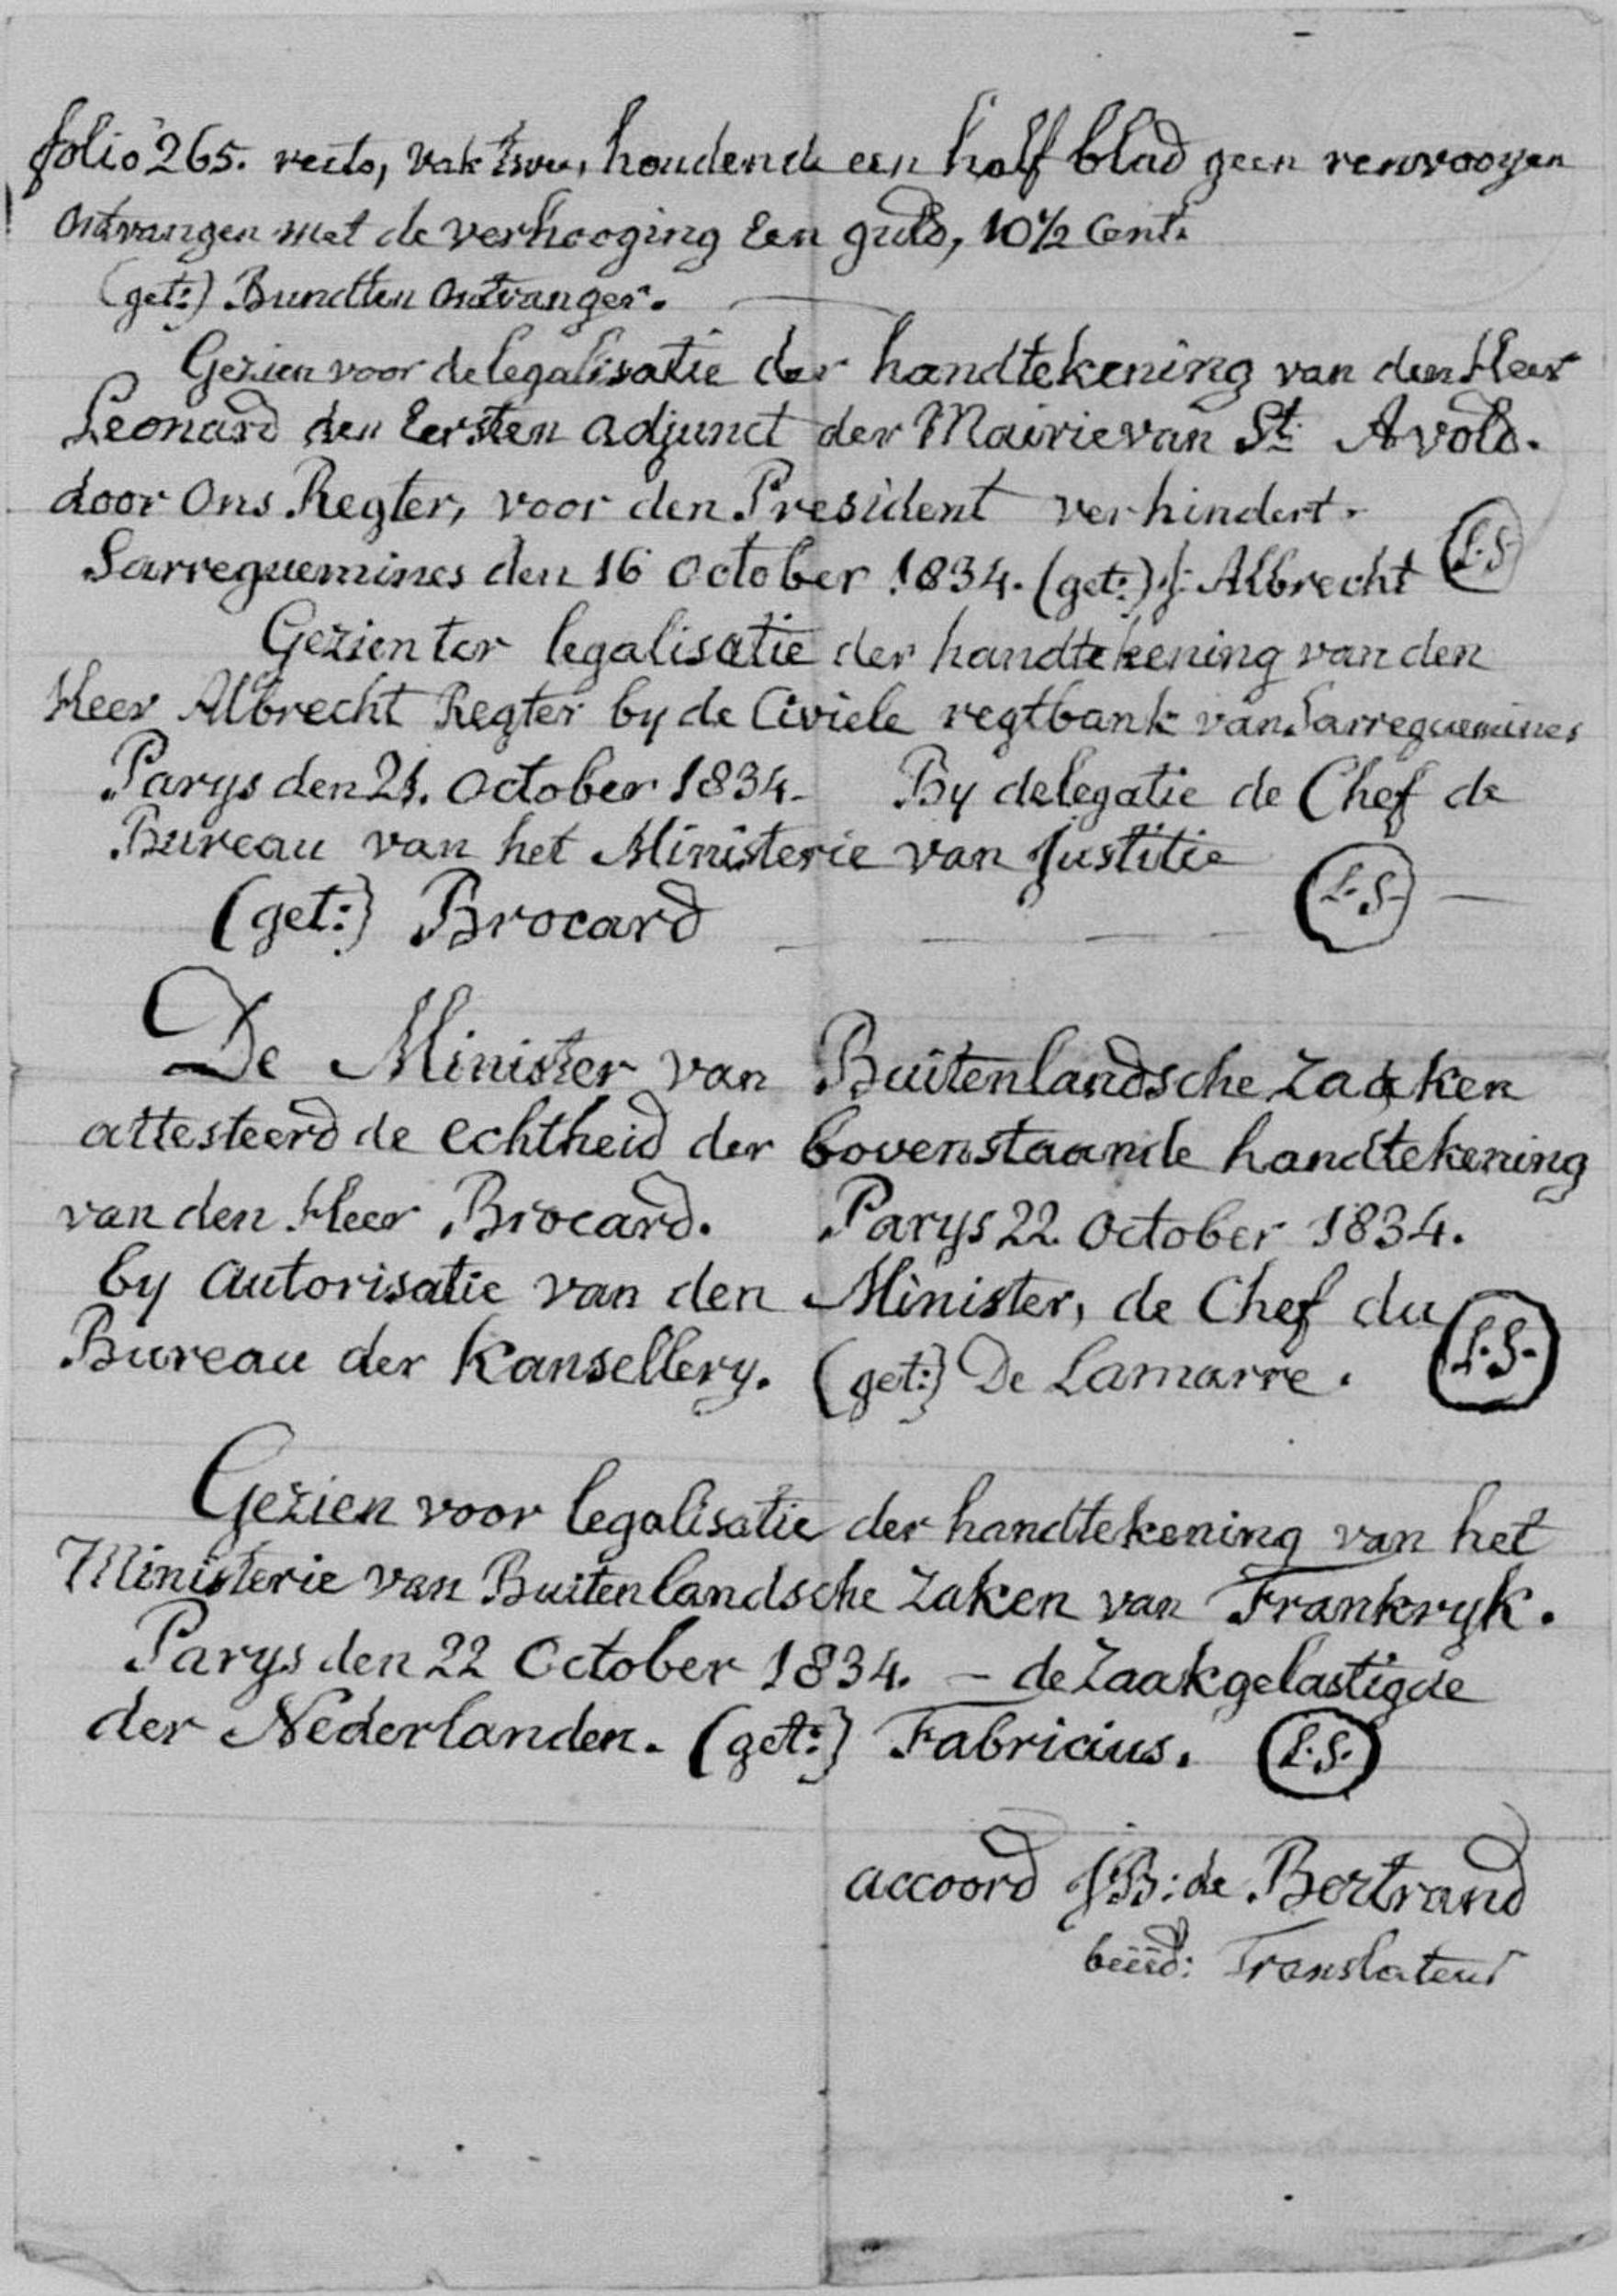 folio 265. recto, vak twee, houdende een half blad geen renvooyen
Ontvangen met de verhooging Een guld, 10 1/2 Cent.
(get:) Bundten Ontvanger.
Gezien voor de legalisatie der handtekening van den Heer
Leonard den Eersten adjunct der Mairie van St. Avold.
door Ons Regter, voor den President verhindert.
Sarreguemines den 16 October 1834. (get:) J: Albrecht (L.S)
Gezien ter legalisatie der handtekening van den
Heer Albrecht Regter by de Civiele regtbank van Sarreguemines
Parys den 21. October 1834. By delegatie de Chef de
Bureau van het Ministerie van Justitie
(get:) Brocard (L.S.)
De Minister van Buitenlandsche Zaaken
attesteerd de echtheid der bovenstaande handtekening
van den Heer Brocard. Parys 22 October 1834.
by Autorisatie van den Minister, de Chef du
Bureau der Kansellery. (get:) De Lamarre. (L.S.)
Gezien voor legalisatie der handtekening van het
Ministerie van Buitenlandsche Zaken van Frankryk.
Parys den 22 October 1834. – de Zaakgelastigde
der Nederlanden. (get:) Fabricius. (L.S.)
accoord JB: de Bertrand
beëed: Translateur